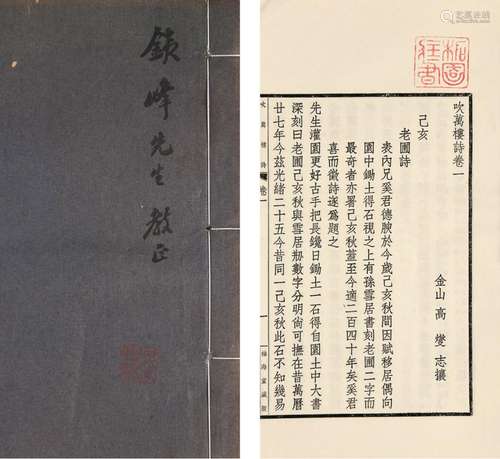 鐵峰先生教正
吹萬樓詩卷一
金山 高 燮 志攘
己亥
老圃詩
表內兄奚君德腴於今歲己亥秋間因賦移居偶向
園中鋤土得石視之上有孫雪居書刻老圃二字而
最奇者亦署己亥秋蓋至今適二百四十年矣奚君
喜而徵詩遂爲題之
先生灌園更好古手把長鑱日鋤土一石得自園土中大書
深刻曰老圃己亥秋與雪居札數字分明尚可撫在昔萬曆
廿七年今茲光緒二十五今昔同一己亥秋此石不知幾易
吹萬樓詩
卷一
一
袖海堂叢版